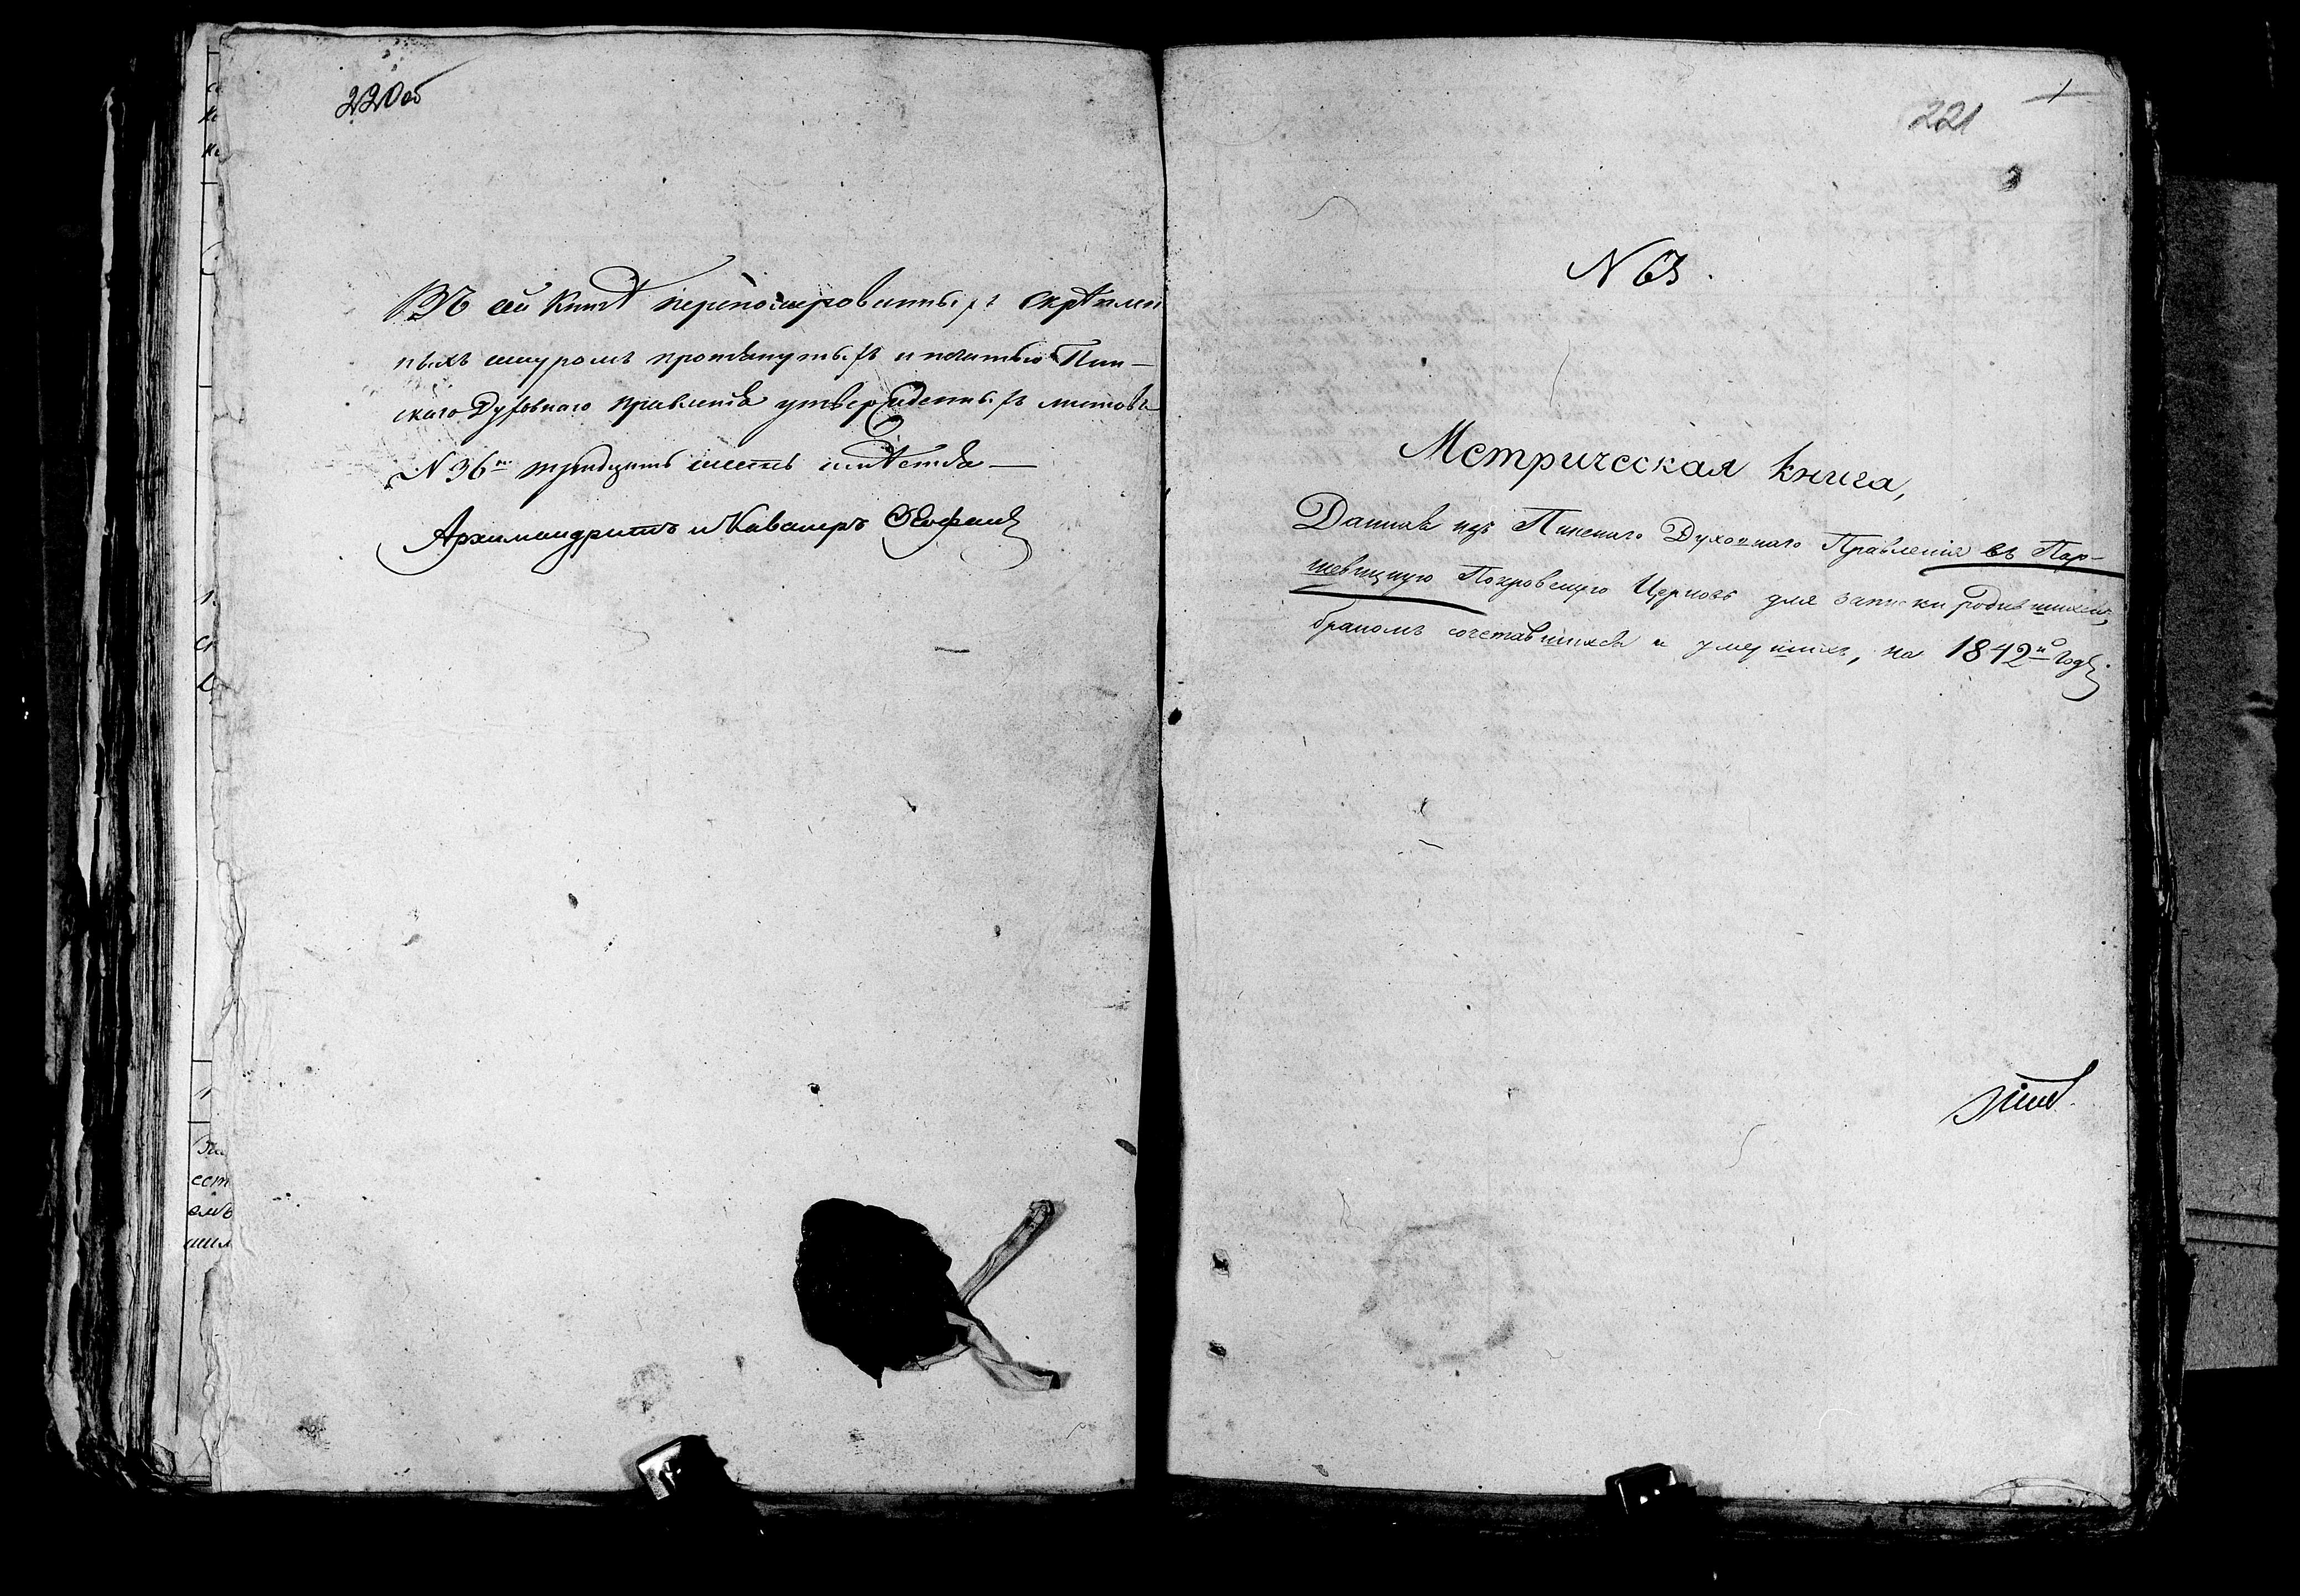 220об
Въ сей Книгѣ перенумерованныхъ скрѣплен
ныхъ шнуромъ протянутыхъ и печатью Пин-
скаго Духовнаго Правленія утвержденныхъ листовъ
N 36ть тридцать шесть имѣется —
Архимандритъ и Кавалеръ
221
1
N 63.
Метрическая книга,
Данная изъ Пинскаго Духовнаго Правленія въ Пар-
шевицкую Покровскую Церковь для записки родившихся,
бракомъ сочетавшихся и умершихъ, на 1842й Годъ.